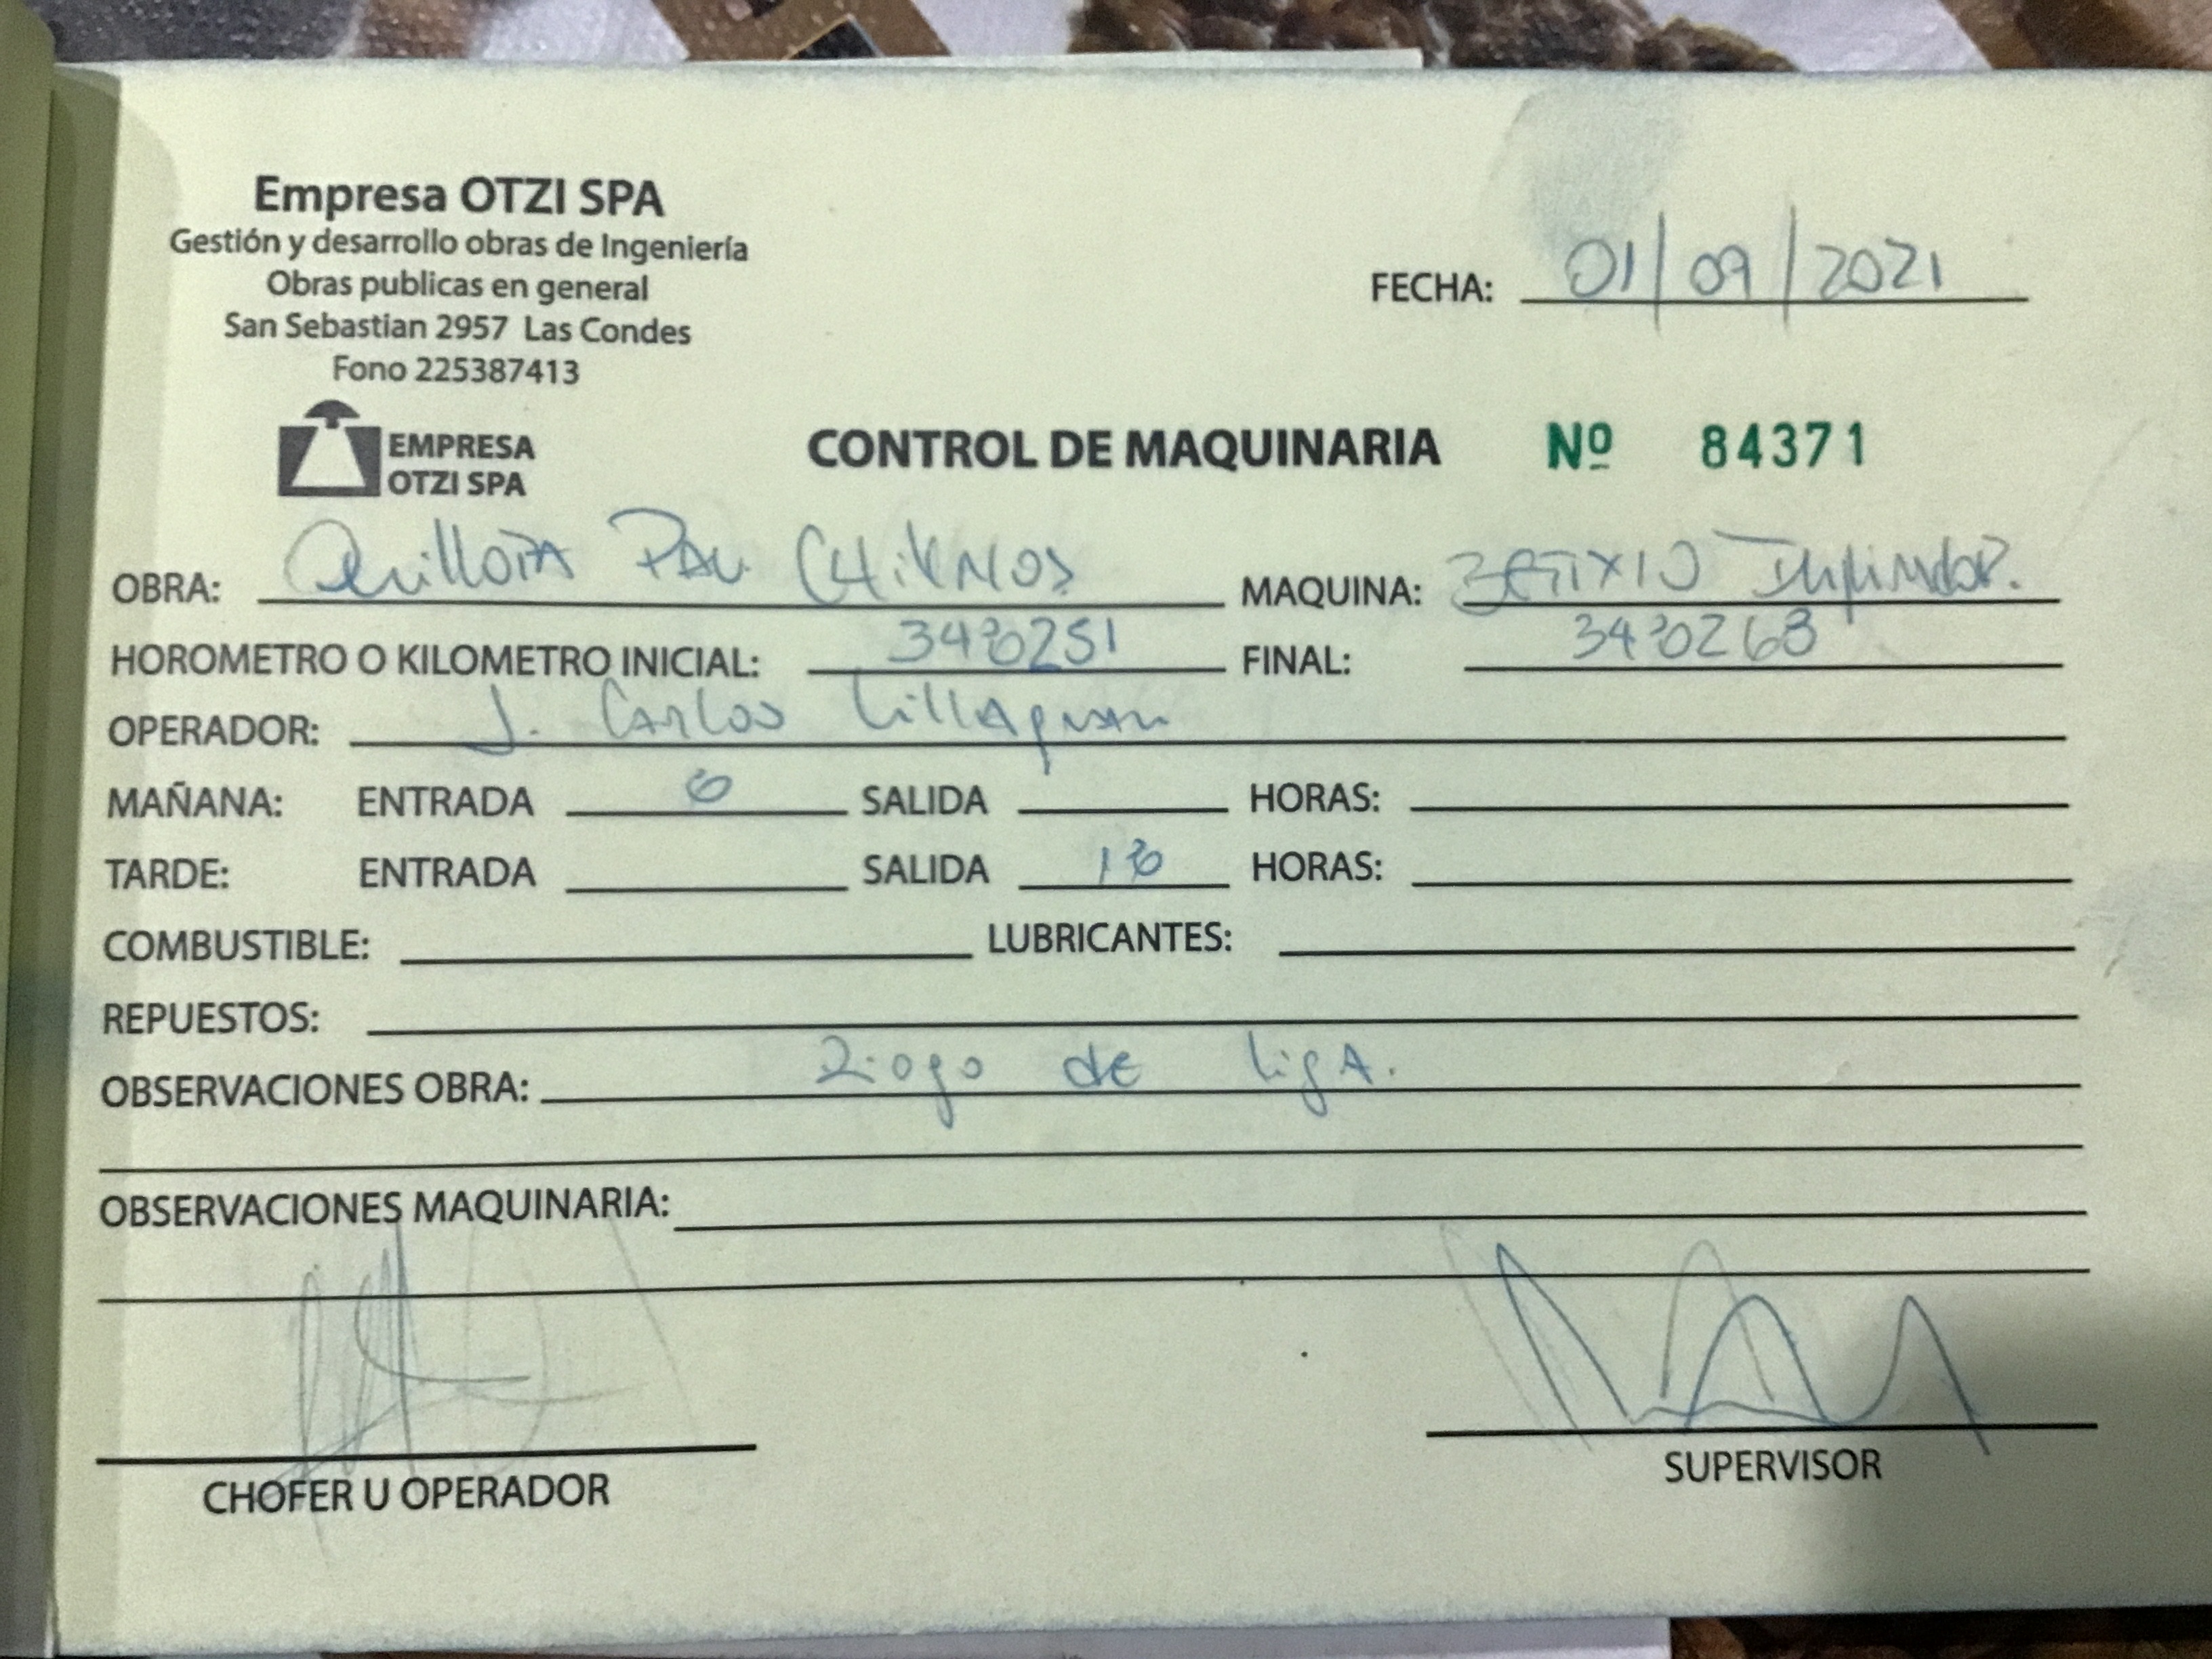 Empresa OTZI SPA
Gestión y desarrollo obras de Ingeniería
Obras publicas en general
San Sebastian 2957 Las Condes
Fono 225387413
FECHA: 01/09/2021
EMPRESA
OTZI SPA
CONTROL DE MAQUINARIA Nº 84371
OBRA: Quillota
MAQUINA:
HOROMETRO O KILOMETRO INICIAL: FINAL:
OPERADOR: J. Carlos
MAÑANA: ENTRADA SALIDA HORAS:
TARDE: ENTRADA SALIDA HORAS:
COMBUSTIBLE: LUBRICANTES:
REPUESTOS:
OBSERVACIONES OBRA: de ligA.
OBSERVACIONES MAQUINARIA:
CHOFER U OPERADOR
SUPERVISOR